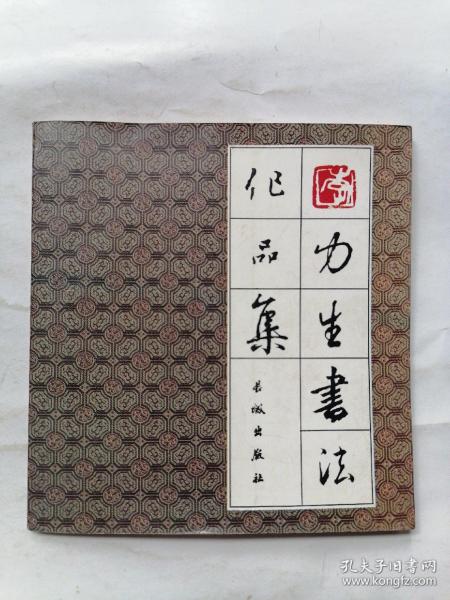 李力生書法
作品集
長城出版社
孔夫子旧书网
www.kongfz.com